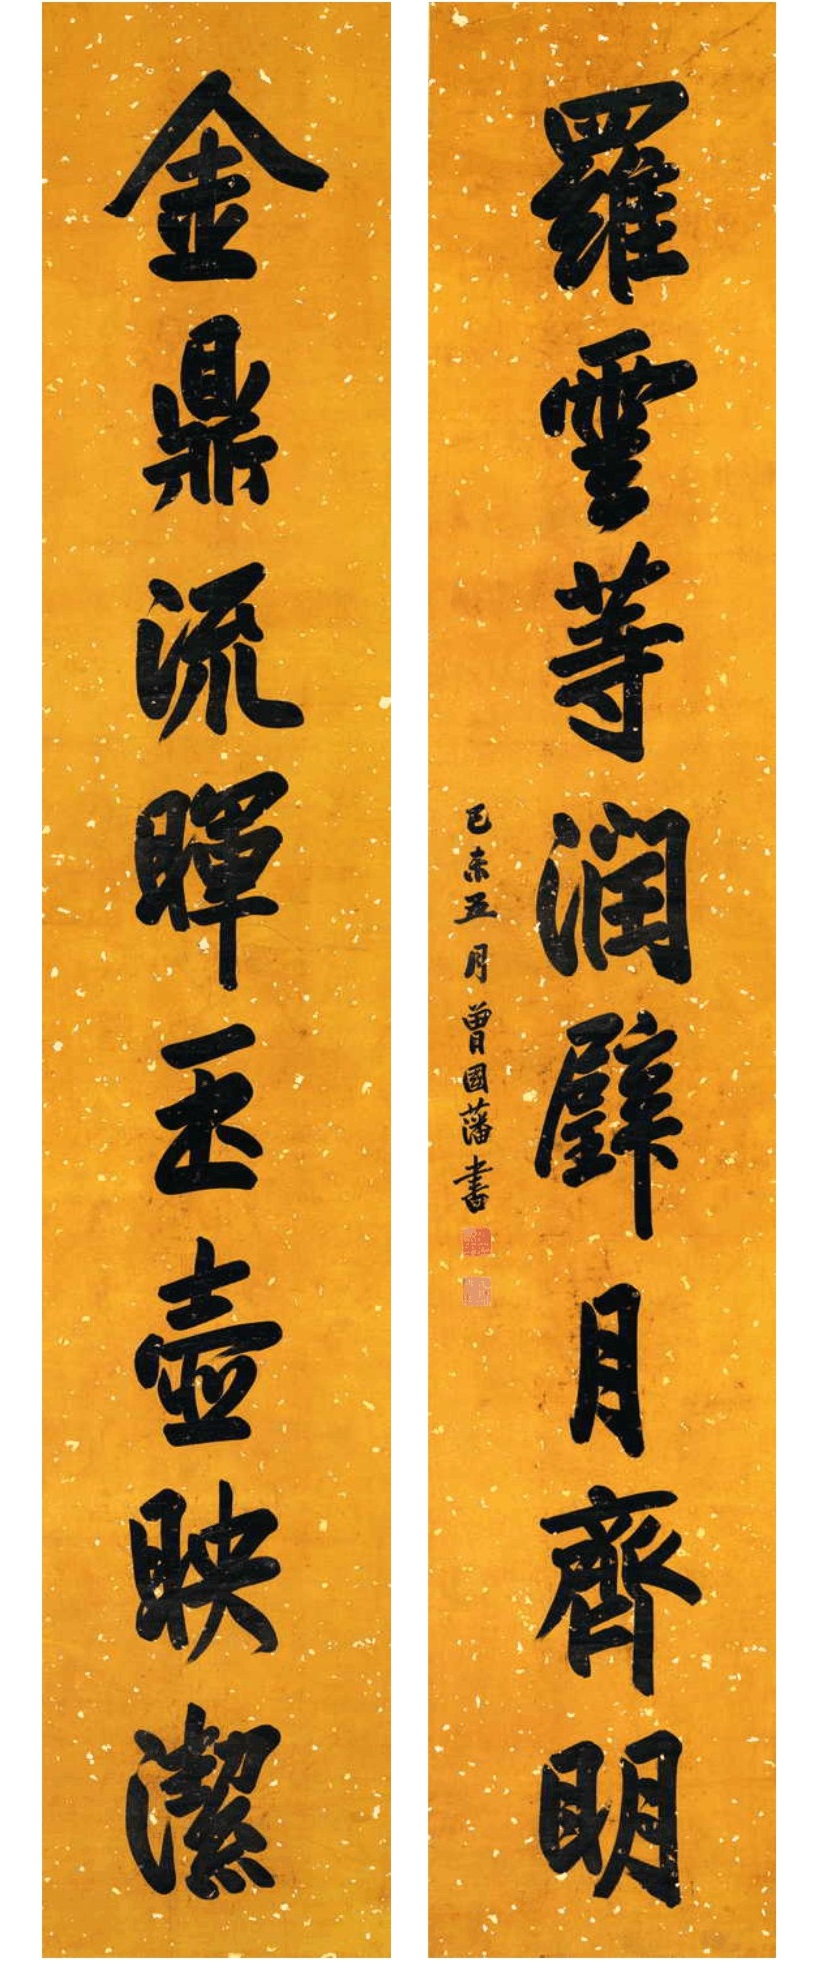 羅雲等潤璧月齊明
己未五月曾國藩書
金鼎流暉玉壺映潔